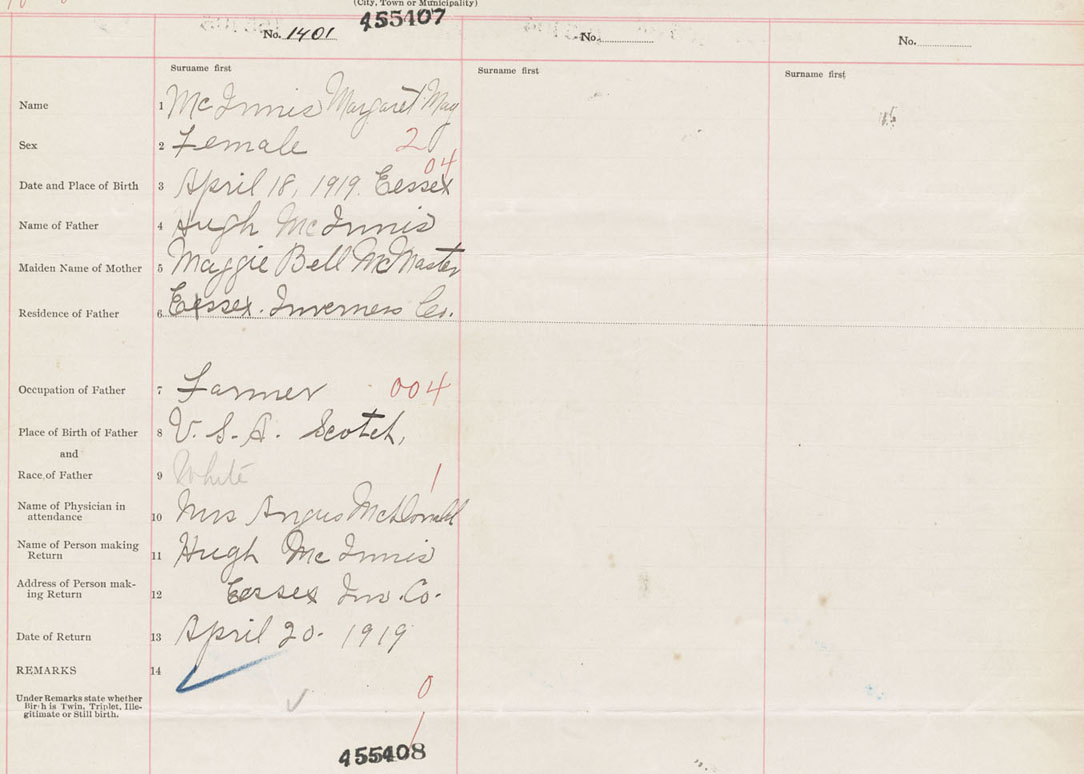 (City, Town or Municipality)
455407
No. 1401 No. No.
Suruame first Surname first Surname first
Name 1 McInnis Margaret May
Sex 2 Female 2
04
Date and Place of Birth 3 April 18, 1919. Eessex
Name of Father 4 Hugh McInnis
Maiden Name of Mother 5 Maggie Bell McMaster
Residence of Father 6 Eessex. Inverness Co.
Occupation of Father 7 Farmer 004
Place of Birth of Father 8 U.S.A. Scotch,
and
Race of Father 9 White 1
Name of Physician in
attendance 10 Mrs Angus McDonald
Name of Person making
Return 11 Hugh McInnis
Address of Person mak-
ing Return 12 Eessex Inv. Co.
Date of Return 13 April 20. 1919
REMARKS 14
Under Remarks state whether
Birth is Twin, Triplet, Ille-
gitimate or Still birth.
0
1
455408